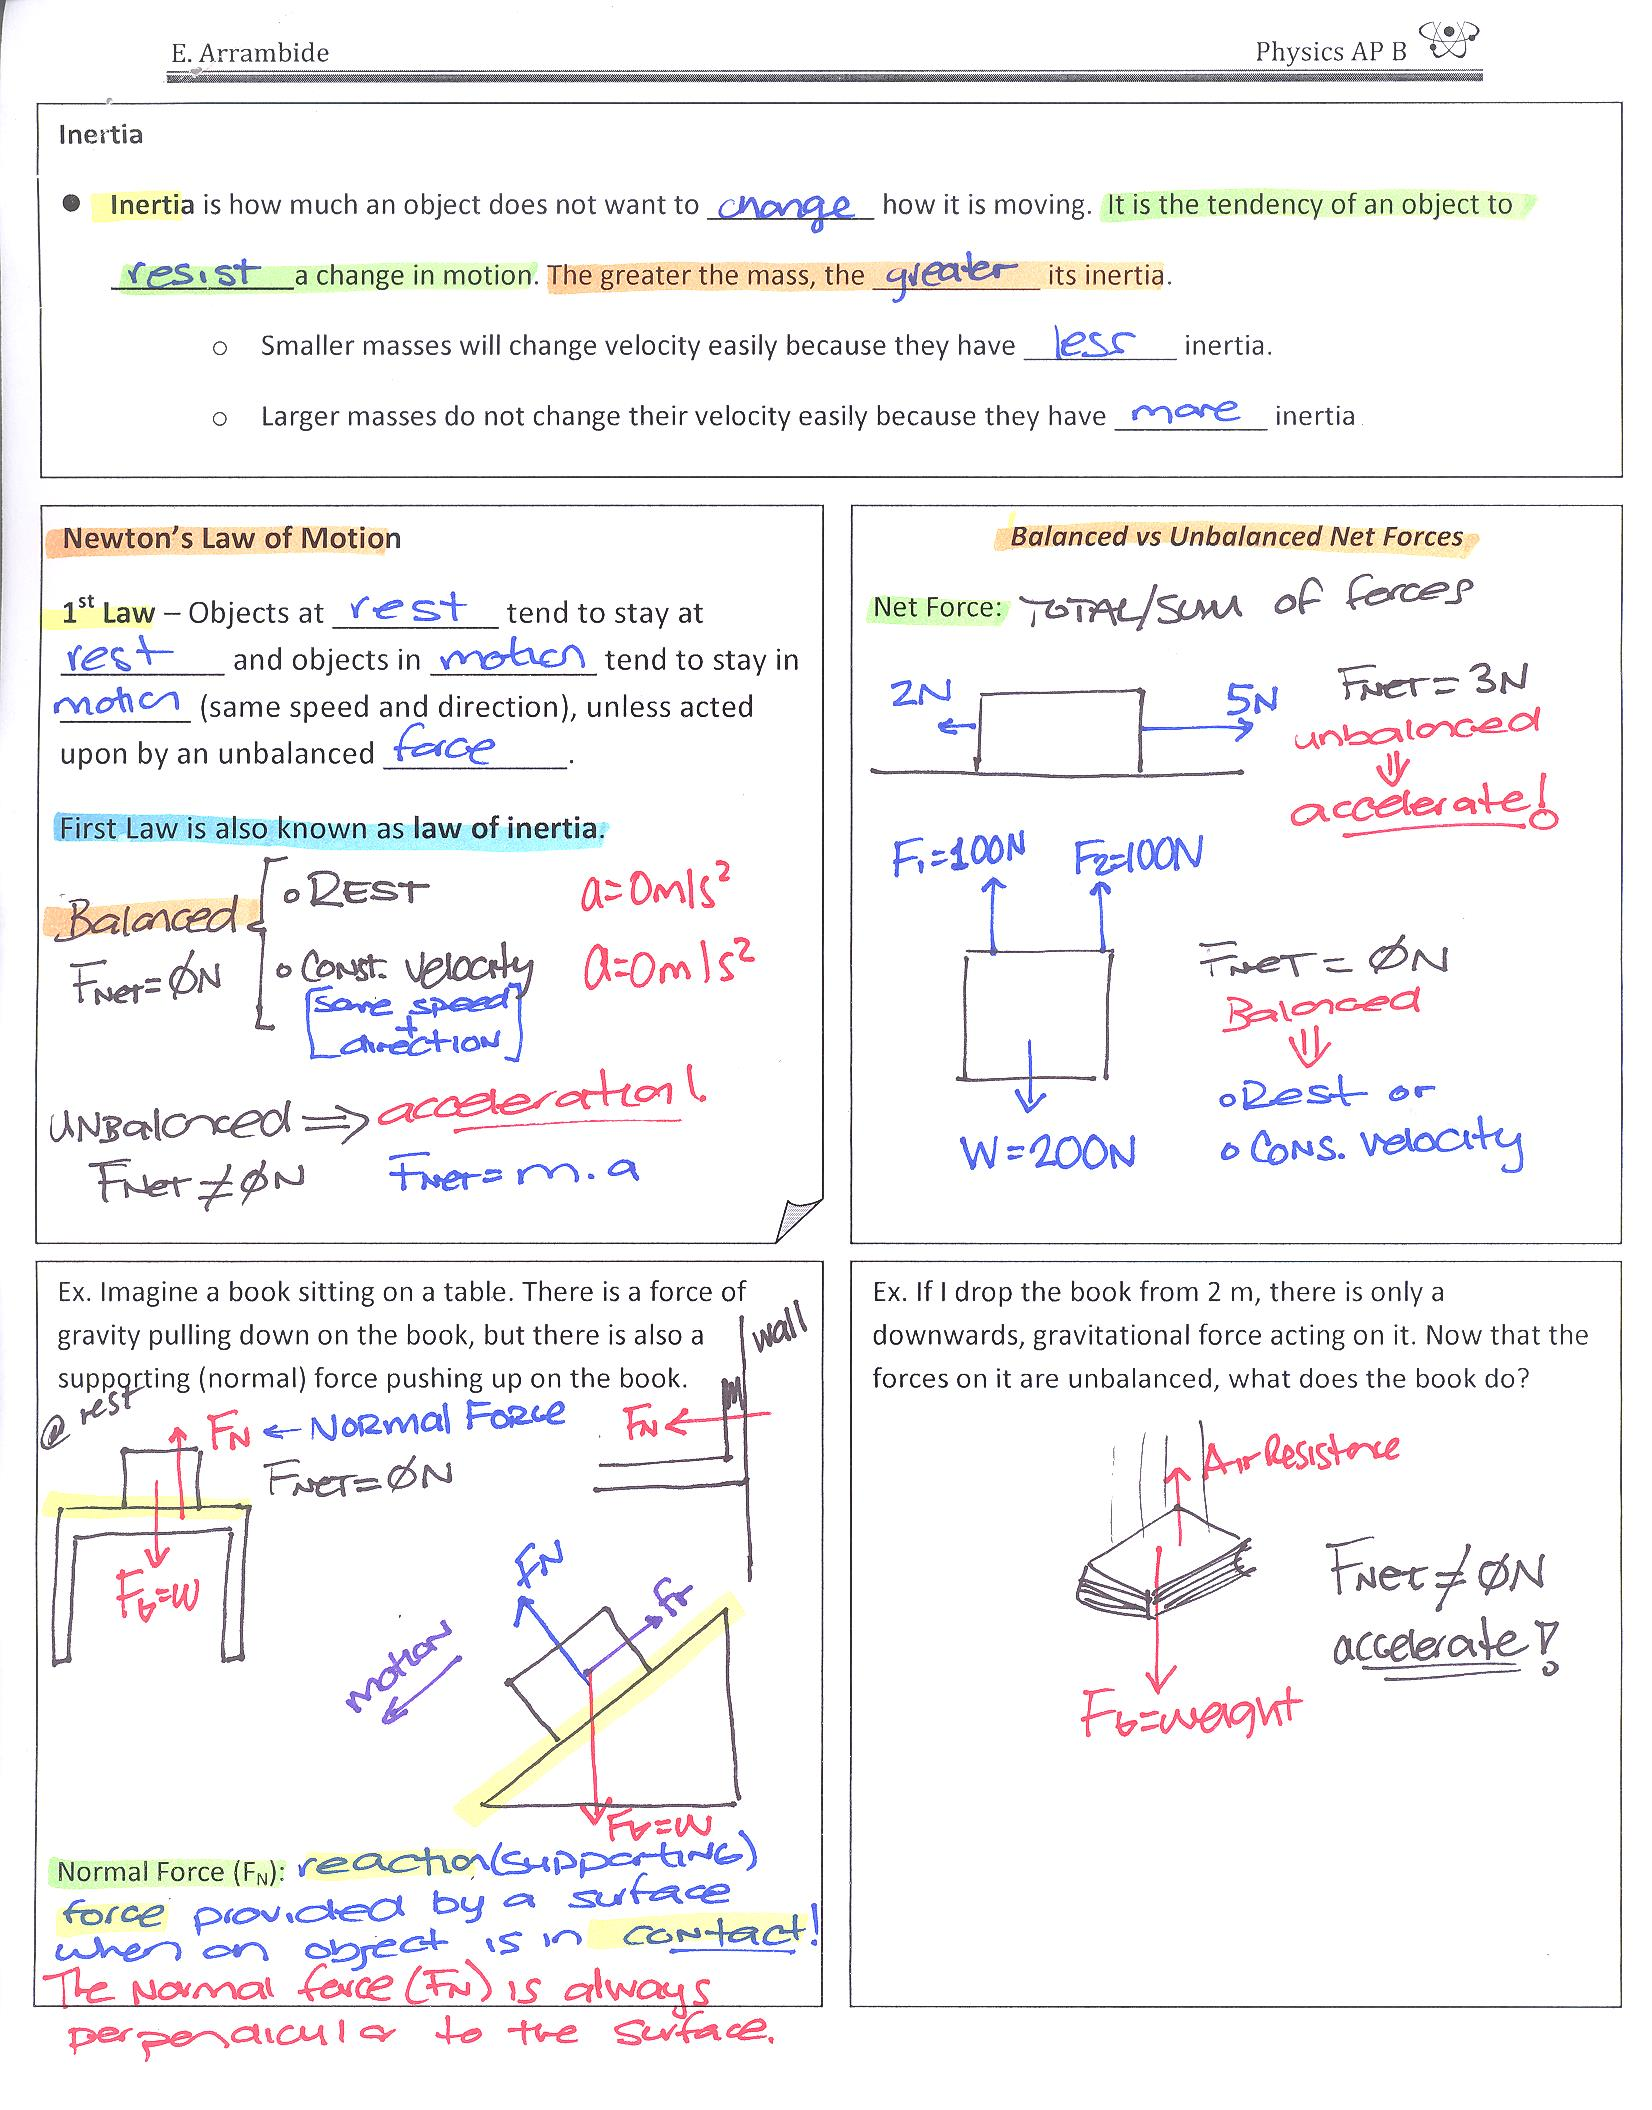 E. Arrambide
Physics AP B
Inertia
● Inertia is how much an object does not want to change how it is moving. It is the tendency of an object to
resist a change in motion. The greater the mass, the greater its inertia.
o Smaller masses will change velocity easily because they have less inertia.
o Larger masses do not change their velocity easily because they have more inertia
Newton's Law of Motion
1st Law – Objects at rest tend to stay at
rest and objects in motion tend to stay in
motion (same speed and direction), unless acted
upon by an unbalanced force.
First Law is also known as law of inertia.
Balanced
FNET=ØN
o REST a=0m/s²
o Const. velocity a=0m/s²
[same speed
+
direction]
UNBalanced ⇒ acceleration!
FNET≠ØN FNET=m.a
Balanced vs Unbalanced Net Forces
Net Force: TOTAL/SUM of forces
2N 5N
FNET=3N
unbalanced
⇓
accelerate!
F₁=100N F₂=100N
W=200N
FNET=ØN
Balanced
⇓
o Rest or
o Cons. velocity
Ex. Imagine a book sitting on a table. There is a force of
gravity pulling down on the book, but there is also a
supporting (normal) force pushing up on the book.
@ rest
FN ← NORMAL FORCE
FNET=ØN
Fg=W
wall
FN
FN
Fr
motion
Fg=W
Normal Force (FN): reaction (supporting)
force provided by a surface
when an object is in contact!
The Normal force (FN) is always
perpendicular to the surface.
Ex. If I drop the book from 2 m, there is only a
downwards, gravitational force acting on it. Now that the
forces on it are unbalanced, what does the book do?
Air Resistance
FNET≠ØN
accelerate!
Fg=weight